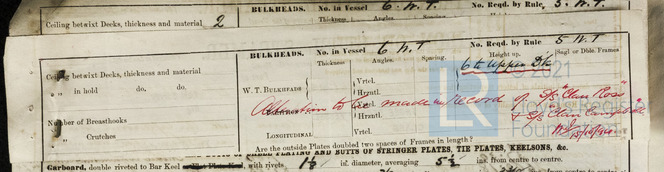 Ceiling betwixt Decks, thickness and material 2
BULKHEADS. No. in Vessel 6 W.T No. Reqd. by Rule 5 W.T
Thickness. Angles. Spacing.
BULKHEADS. No. in Vessel 6 W.T No. Reqd. by Rule 5 W.T
Thickness Angles. Spacing. Height up. Sngl or Dble. Frames
Ceiling betwixt Decks, thickness and material
6 to Upper Dk
„ „ in hold do. do.
W. T. BULKHEADS Vrtcl.
Hrzntl.
© 2021
Alteration to be made in Record of S/S "Clan Ross"
& S/S "Clan Campbell"
Number of Breasthooks
Vrtcl.
Hrzntl.
„ Crutches
LONGITUDINAL Vrtcl.
Are the outside Plates doubled two spaces of Frames in length?
BUTTS OF STRINGER PLATES, TIE PLATES, KEELSONS, &c.
Garboard, double riveted to Bar Keel, with rivets 1⅛ in. diameter, averaging 5½ ins. from centre to centre.
LR
Foundation